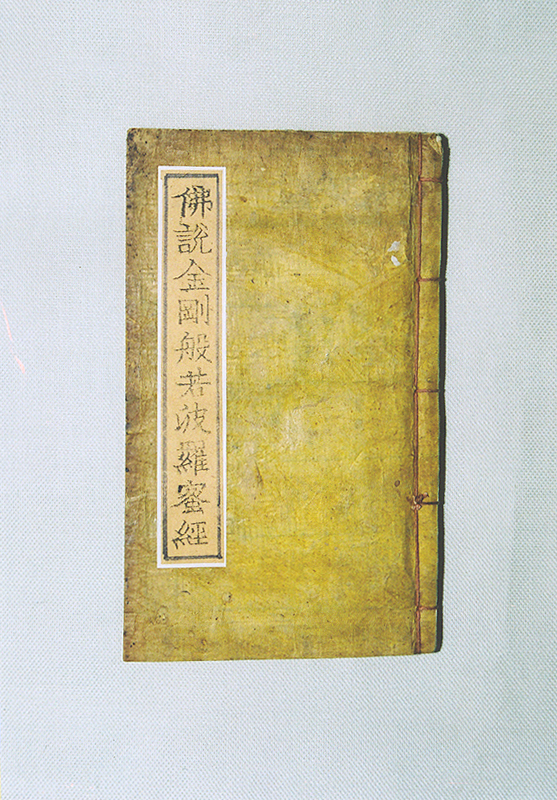 佛說金剛般若波羅蜜經